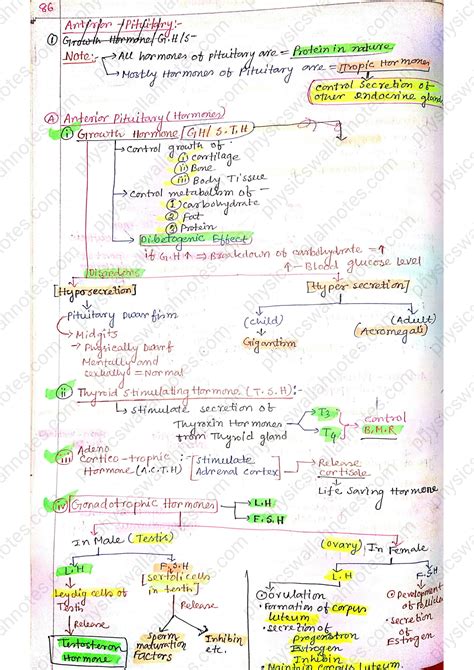 86
Anterior Pituitary:-
① Growth Hormone/G.H/S-
Note:- → All hormones of pituitary are = Protein in nature
→ Mostly Hormones of Pituitary are = Tropic Hormones
control secretion of
other endocrine glands
Ⓐ Anterior Pituitary (Hormones)
ⓘ Growth Hormone [GH/S.T.H]
→ Control growth of -
ⓘ Cartilage
ⓘⓘ Bone
ⓘⓘⓘ Body Tissue
→ Control metabolism of -
① Carbohydrate
② Fat
③ Protein
→ Dibetogenic Effect
if G.H ↑ ⇒ Breakdown of carbohydrate = ↑
↑ - Blood glucose level
Disorders
[Hyposecretion]
[Hyper secretion]
Pituitary Dwarfism
→ Midgits
→ Physically Dwarf
Mentally and
sexually = Normal
(child)
Gigantism
(Adult)
(Acromegali)
ii Thyroid Stimulating Hormone (T.S.H)
→ stimulate secretion of
Thyroxin Hormones
from Thyroid gland
T3
T4
control
B.M.R
iii Adeno
Cortico-trophic
Hormone (A.C.T.H)
: stimulate
Adrenal cortex
→ Release
cortisole
Life Saving Hormone
iv Gonadotrophic Hormones
→ L.H
→ F.S.H
In Male (Testis)
(ovary) In Female
L.H
Leydig cells of
Testis
Release
Testosteron
Hormone
F.S.H
[sertoli cells
in testis]
Release
Sperm
maturation
Factors
Inhibin
etc.
L.H
→ ovulation
• Formation of corpus
luteum
• secretion of
progenstron
Estrogen
Inhibin
• Maintain corpus luteum
F.S.H
→ Development
of follicles
• secretion
of
Estrogen
physicswallahnotes.com